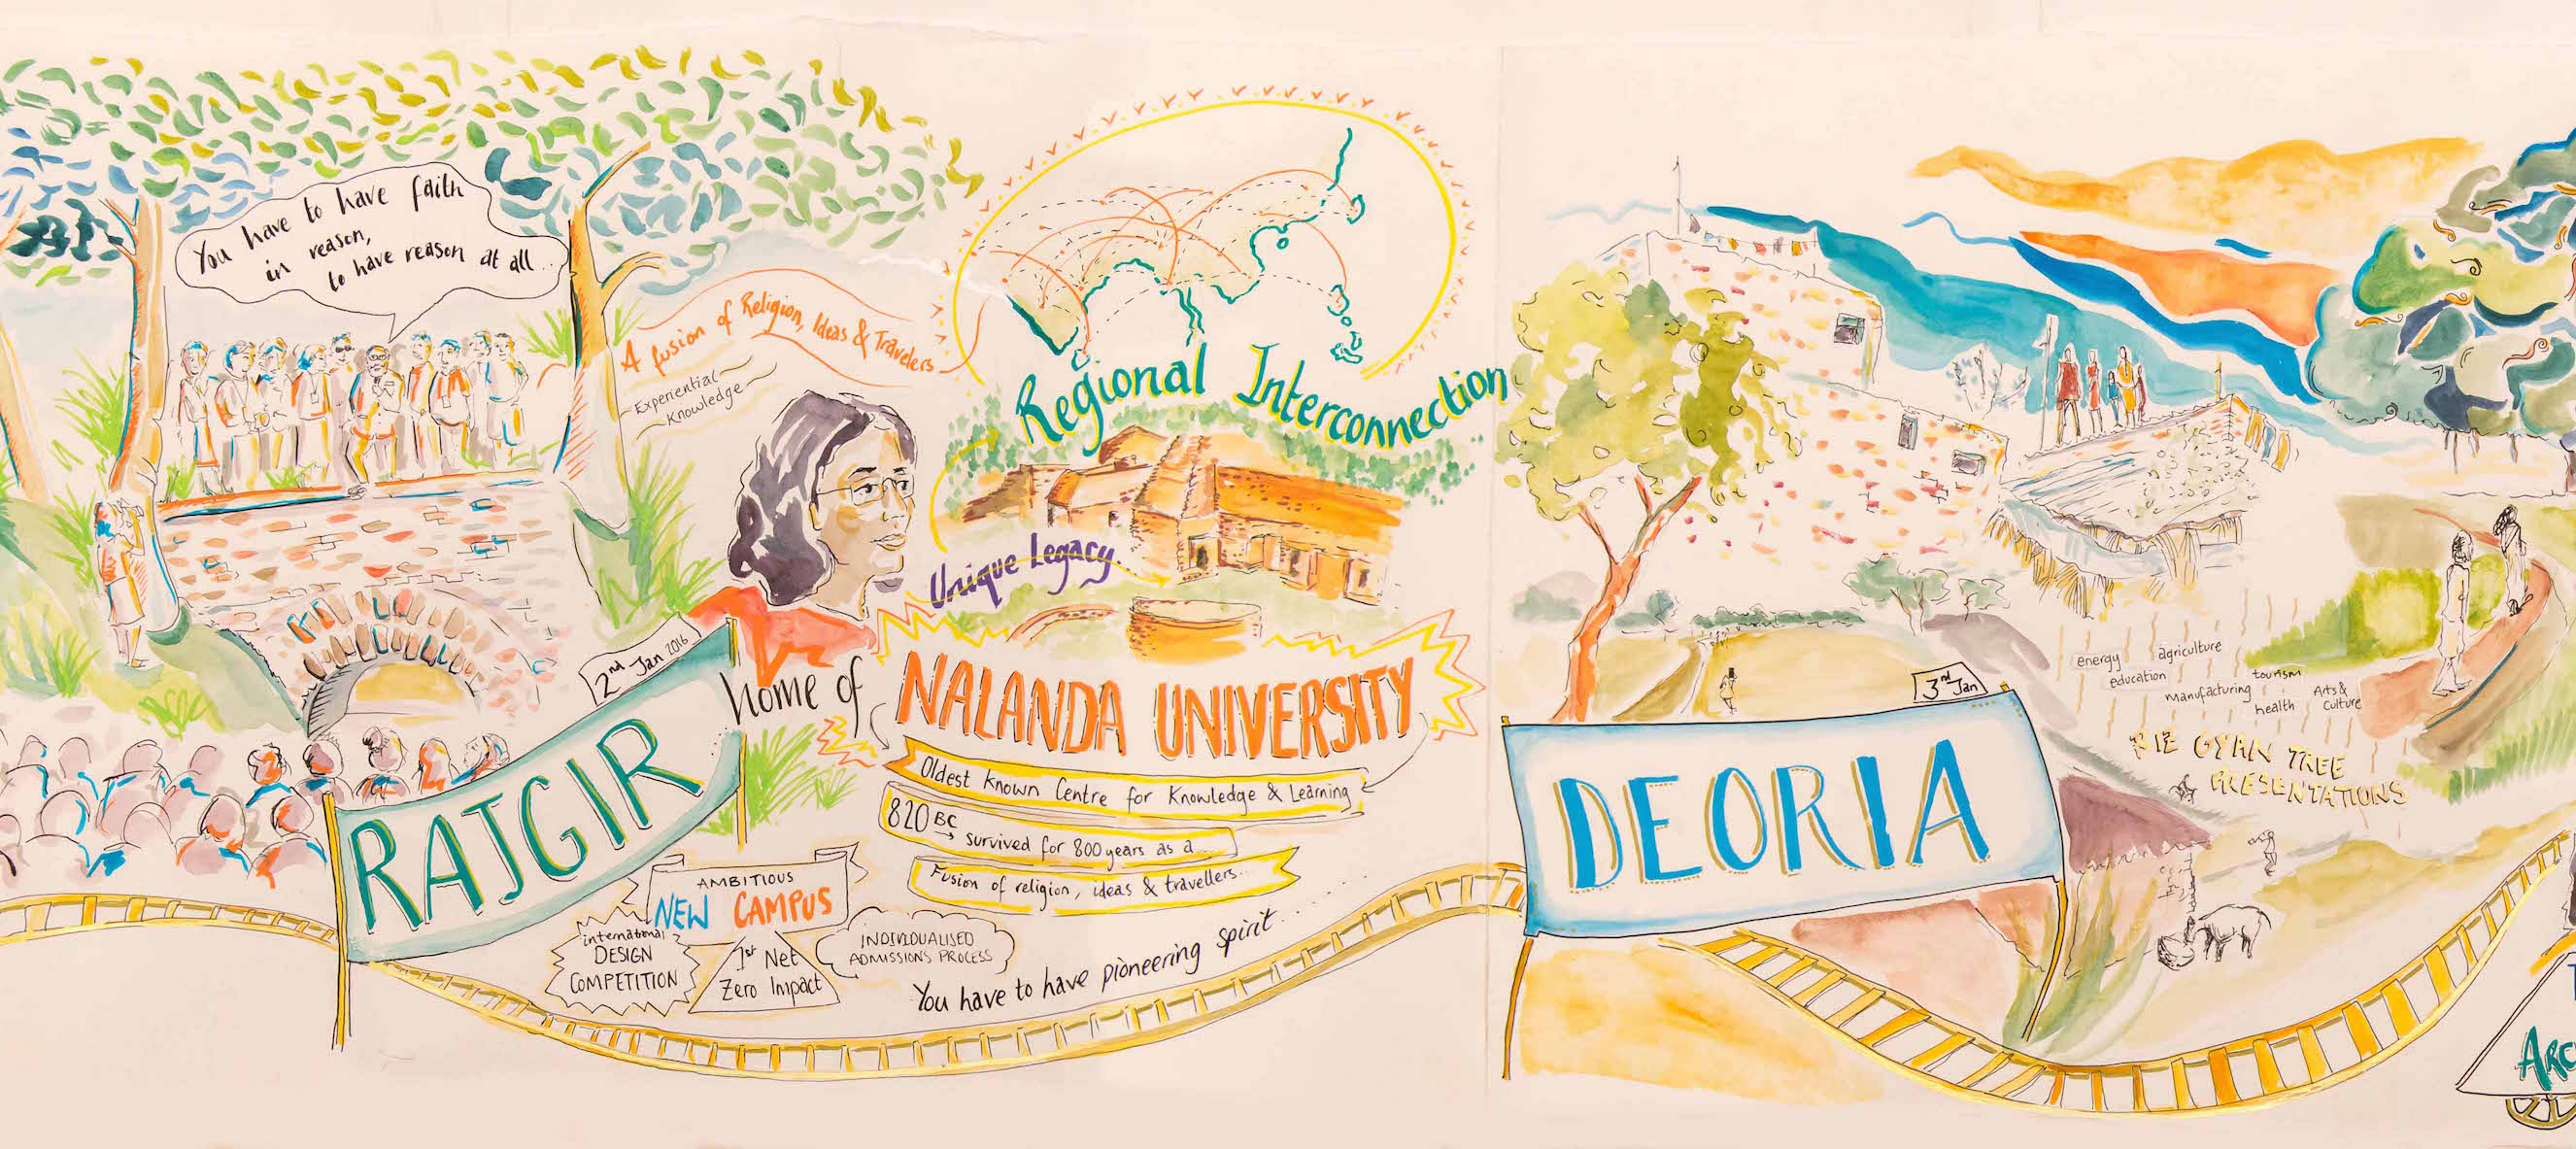 You have to have faith
in reason,
to have reason at all...
A fusion of Religion, Ideas & Travelers
Experiential
Knowledge
Regional Interconnection
Unique Legacy...
2nd Jan 2016
RAJGIR
home of
NALANDA UNIVERSITY
Oldest known Centre for Knowledge & Learning
820 BC → survived for 800 years as a...
Fusion of religion, ideas & travellers...
AMBITIOUS
NEW CAMPUS
international
DESIGN
COMPETITION
1st Net
Zero Impact
INDIVIDUALISED
ADMISSIONS PROCESS
You have to have pioneering spirit......
3nd Jan
DEORIA
energy
agriculture
education
tourism
manufacturing
Arts &
Culture
health
BIZ GYAN TREE
PRESENTATIONS